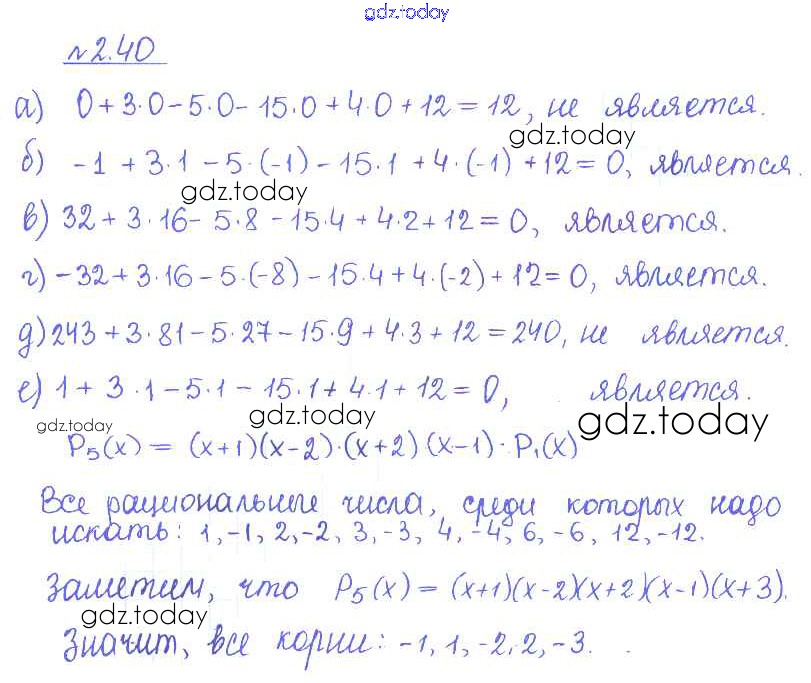 gdz.today
№2.40
а) 0+3·0-5·0-15·0+4·0+12=12, не является.
gdz.today
б) -1+3·1-5·(-1)-15·1+4·(-1)+12=0, является.
gdz.today
в) 32+3·16-5·8-15·4+4·2+12=0, является.
г) -32+3·16-5·(-8)-15·4+4·(-2)+12=0, является.
д) 243+3·81-5·27-15·9+4·3+12=240, не является.
е) 1+3·1-5·1-15·1+4·1+12=0, является.
gdz.today gdz.today gdz.today
P₅(x) = (x+1)(x-2)·(x+2)(x-1)·P₁(x)
Все рациональные числа, среди которых надо
искать: 1,-1, 2,-2, 3,-3, 4,-4, 6,-6, 12,-12.
Заметим, что P₅(x) = (x+1)(x-2)(x+2)(x-1)(x+3).
gdz.today
Значит, все корни: -1, 1, -2, 2, -3.